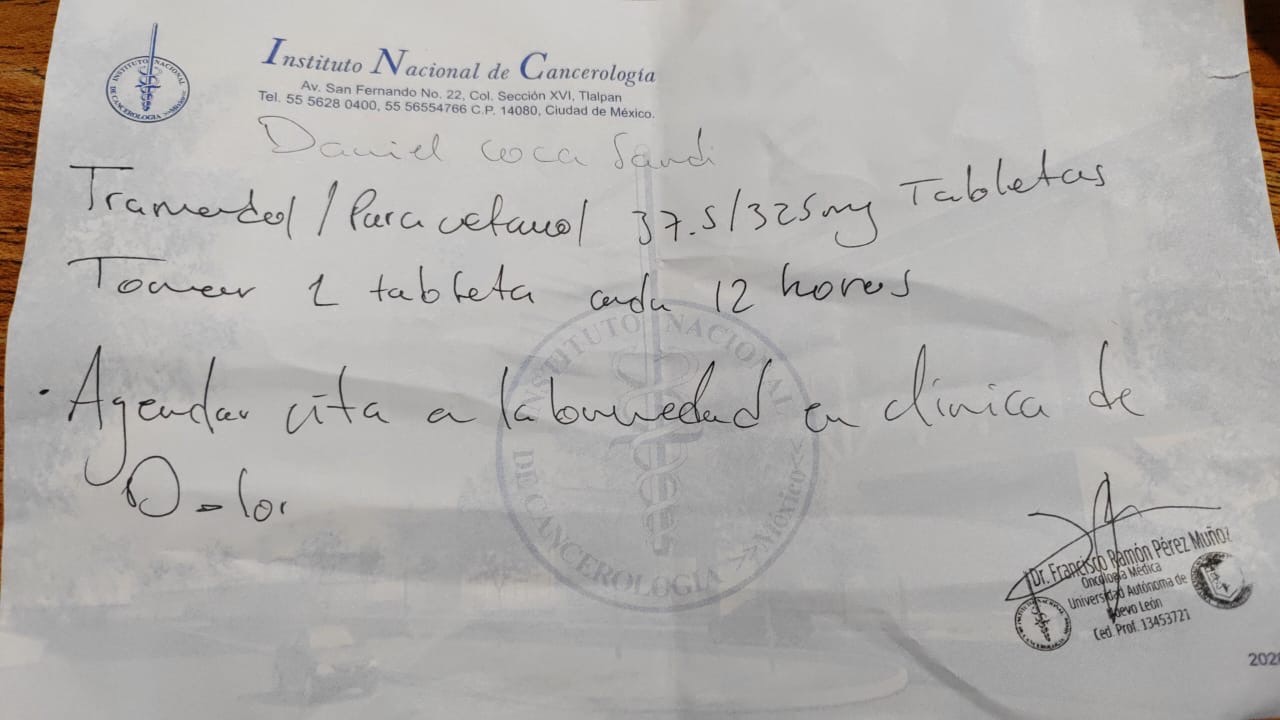 Instituto Nacional de Cancerología
Av. San Fernando No. 22, Col. Sección XVI, Tlalpan
Tel. 55 5628 0400, 55 56554766 C.P. 14080, Ciudad de México.
INSTITUTO NACIONAL DE CANCEROLOGIA México
Daniel Coca Sandi
Tramadol / Paracetamol 37.5/325mg Tabletas
Tomar 1 tableta cada 12 horas
INSTITUTO NACIONAL DE CANCEROLOGIA México
. Agendar cita a la bmedad en clínica de
Dolor
Dr. Francisco Ramón Pérez Muñoz
Oncología Médica
Universidad Autónoma de
Nuevo León
Ced. Prof. 13453721